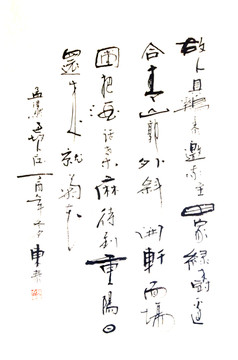 故人具鷄黍邀我至田家緑樹村邊
合青山郭外斜開軒面場
圃把酒話桑麻待到重陽日
還来就菊花
孟浩然